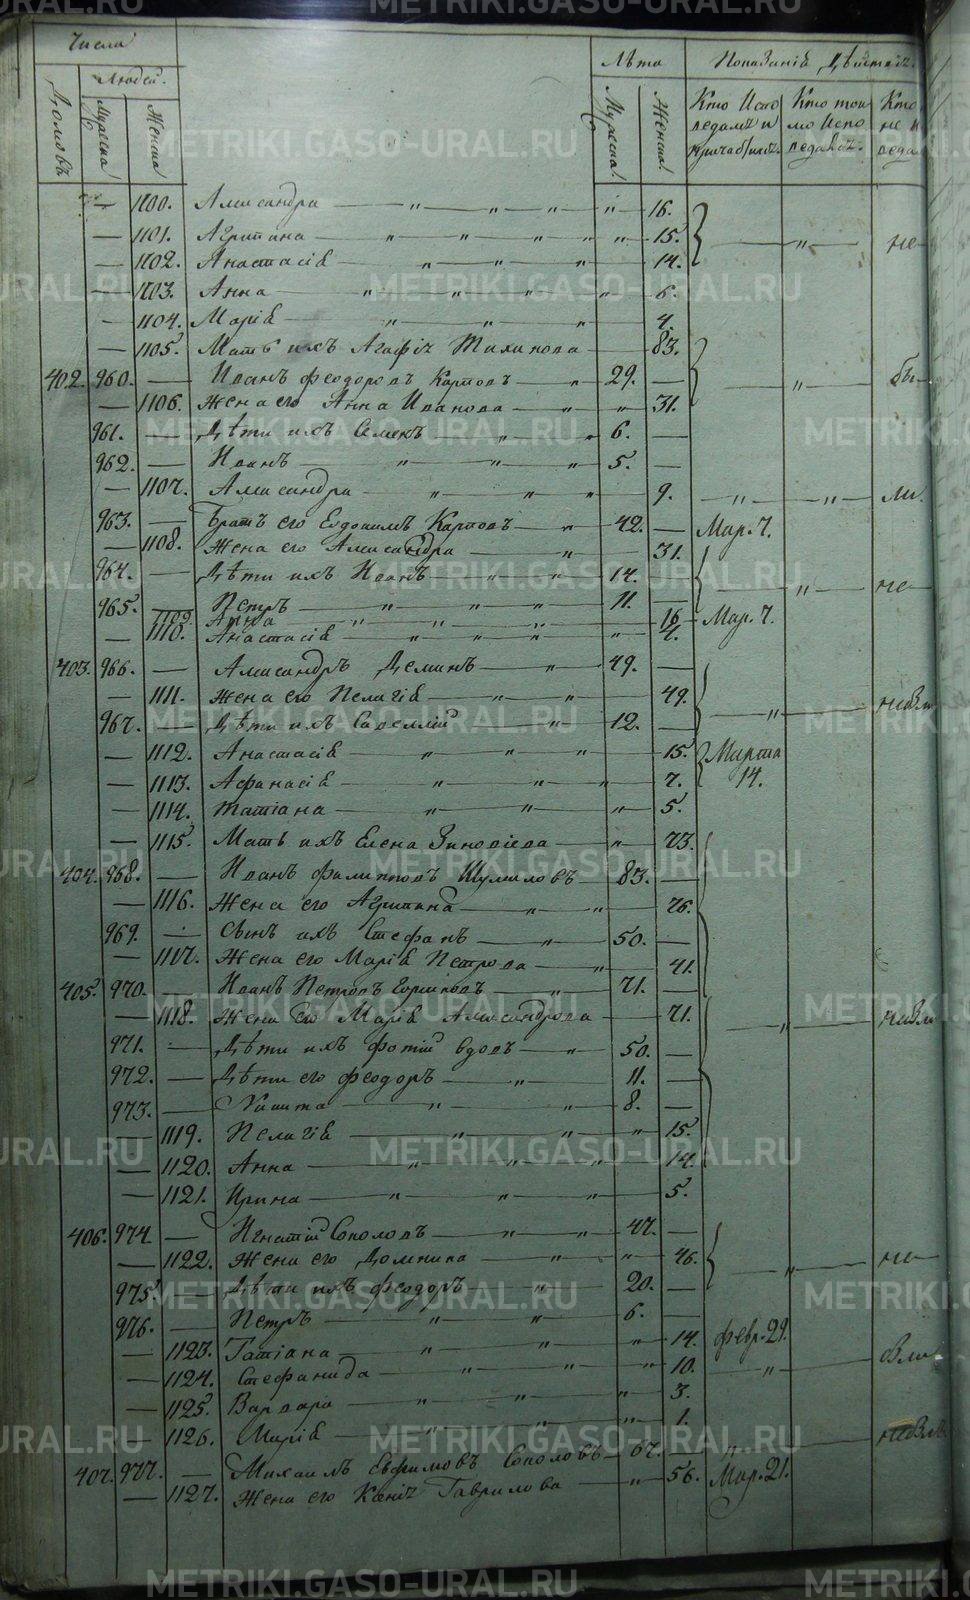 Числа
Людей.
Домовъ
Мужеска
Женска
Лѣта
Мужеска.
Женска.
Показаніе Дѣйств
Кто Испо
ведамъ и
причаст
Кто ток
мо Испо
ведал
Кто
не и
веда
— 1100. Александра — " — " — " " — 16.
— 1101. Агрипина — " — " — " " — 15. — " — не
— 1102. Анастасія — " — " — " — 14.
— 1103. Анна — " — " — " — " — 6.
— 1104. Марія — " — " — " — 4.
— 1105. Мать ихъ Агафія — 83.
402. 960. — Иванъ Феодоровъ Карповъ — " — 29. — — " — бы
— 1106. Жена его Анна Иванова — " — " — 31.
961. — Дѣти ихъ Семенъ — " — " 6. —
962. — Иванъ — " — " — " 5. —
— 1107. Александра — " — " — " — 9. — " — " — ли.
963. — Братъ его Евдокимъ Карповъ — " — 42. — Мар. 7.
— 1108. Жена его Александра — " — 31.
964. — Дѣти ихъ Иванъ — " — " — 14. — " — не
965. — Петръ — " — " — " — 11. —
1109. Анна — " — " — " — 16 Мар. 7.
— 1110. Анастасія — " — " — " — " —
403. 966. — Александръ Деминъ — " — 49. —
— 1111. Жена его Пелагія — " — " — 49.
967. — Дѣти ихъ — " — 12. — — " —
— 1112. Анастасія — " — " — " — 15. Марта
— 1113. Афанасія — " — " — " — 7. 14.
— 1114. Татіана — " — " — " — 5.
— 1115. Мать ихъ Елена Зиновіева — " — 73.
404. 968. — Иванъ Филипповъ Шумиловъ — 83. —
— 1116. Жена его Агрипина — " — " — 76.
969. — Сынъ ихъ Стефанъ — " — 50. —
— 1117. Жена его Марія Петрова — " — 41.
405. 970. — Иванъ Петровъ — " — 71. —
— 1118. Жена его Марія Александрова — 71. — " —
971. — Дѣти ихъ Фотій вдовъ — " — 50. —
972. — Дѣти его Феодоръ — " — 11. —
973. — Никита — " — " — 8. —
— 1119. Пелагія — " — " — " — 15.
— 1120. Анна — " — " — " — 14.
— 1121. Ирина — " — " — " — 5.
406. 974. — Игнатій Соколовъ — " — " 47. —
— 1122. Жена его Домника — " — " " — 46. — " — не
975. — Дѣти ихъ Феодоръ — " — 20. —
976. — Петръ — " — " — 6. —
— 1123. Татіана — " — " — " — 14. Февр. 29.
— 1124. Стефанида — " — " — " — 10. — " —
— 1125. Варвара — " — " — " — 3.
— 1126. Марія — " — " — " — 1.
407. 977. — Михаилъ Евфимовъ Соколовъ — 67. — "
— 1127. Жена его Ксенія Гаврилова — " — 56. Мар. 21.
METRIKI.GASO-URAL.RU